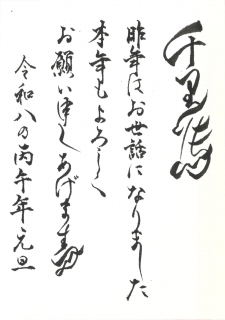 千里馬
昨年はお世話になりました
本年もよろしく
お願い申しあげます
令和八の丙午年元旦